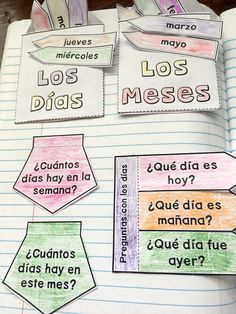 marzo
jueves
miércoles
mayo
Los
Días
Los
Meses
¿Cuántos
días hay en la
semana?
¿Cuántos
días hay en
este mes?
Preguntas con los días
¿Qué día es
hoy?
¿Qué día es
mañana?
¿Qué día fue
ayer?